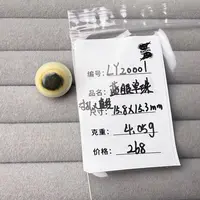 编号: LY20001
品名: 蓝眼单珠
尺寸: 15.8X15.3mm
克重: 4.05g
价格: 268